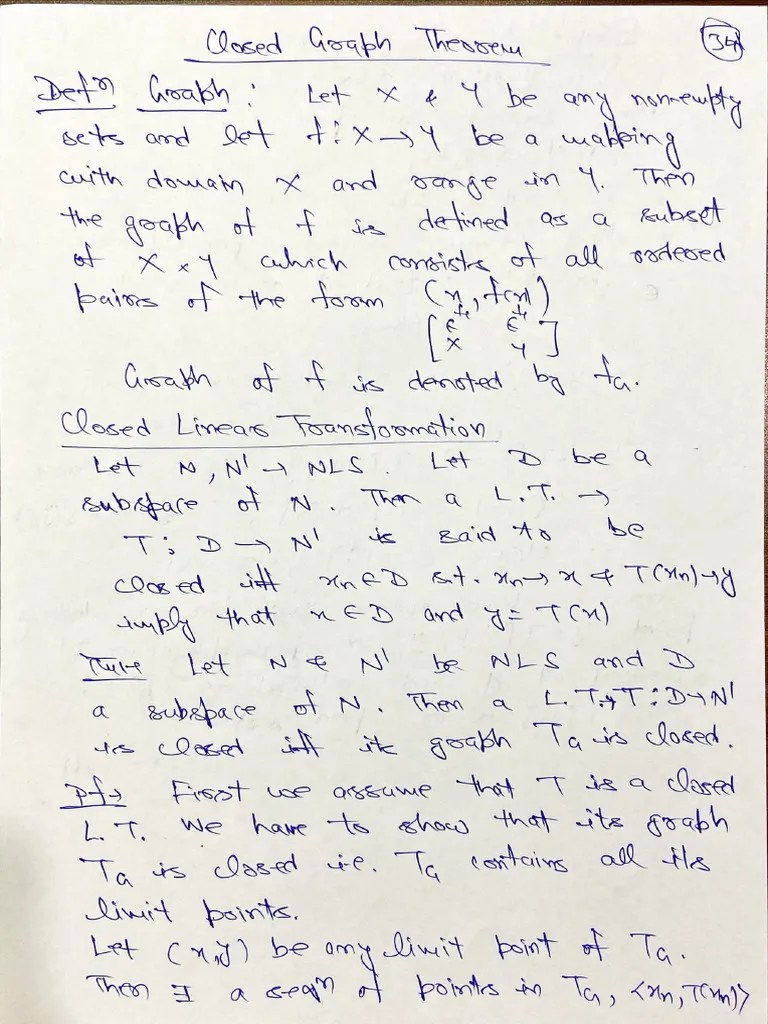 Closed Graph Theorem
34
Defn Graph : Let X & Y be any nonempty
sets and let f : X → Y be a mapping
with domain X and range in Y. Then
the graph of f is defined as a subset
of X × Y which consists of all ordered
pairs of the form (x, f(x))
[ ∈ ∈ ]
X Y
Graph of f is denoted by f_G.
Closed Linear Transformation
Let N, N' → NLS. Let D be a
subspace of N. Then a L.T. →
T : D → N' is said to be
closed iff xn ∈ D s.t. xn → x & T(xn) → y
imply that x ∈ D and y = T(x)
Let N & N' be NLS and D
a subspace of N. Then a L.T. T : D → N'
is closed iff its graph T_G is closed.
Pf → First we assume that T is a closed
L.T. We have to show that its graph
T_G is closed i.e. T_G contains all its
limit points.
Let (x,y) be any limit point of T_G.
Then ∃ a seqn of points in T_G, <xn, T(xn)>